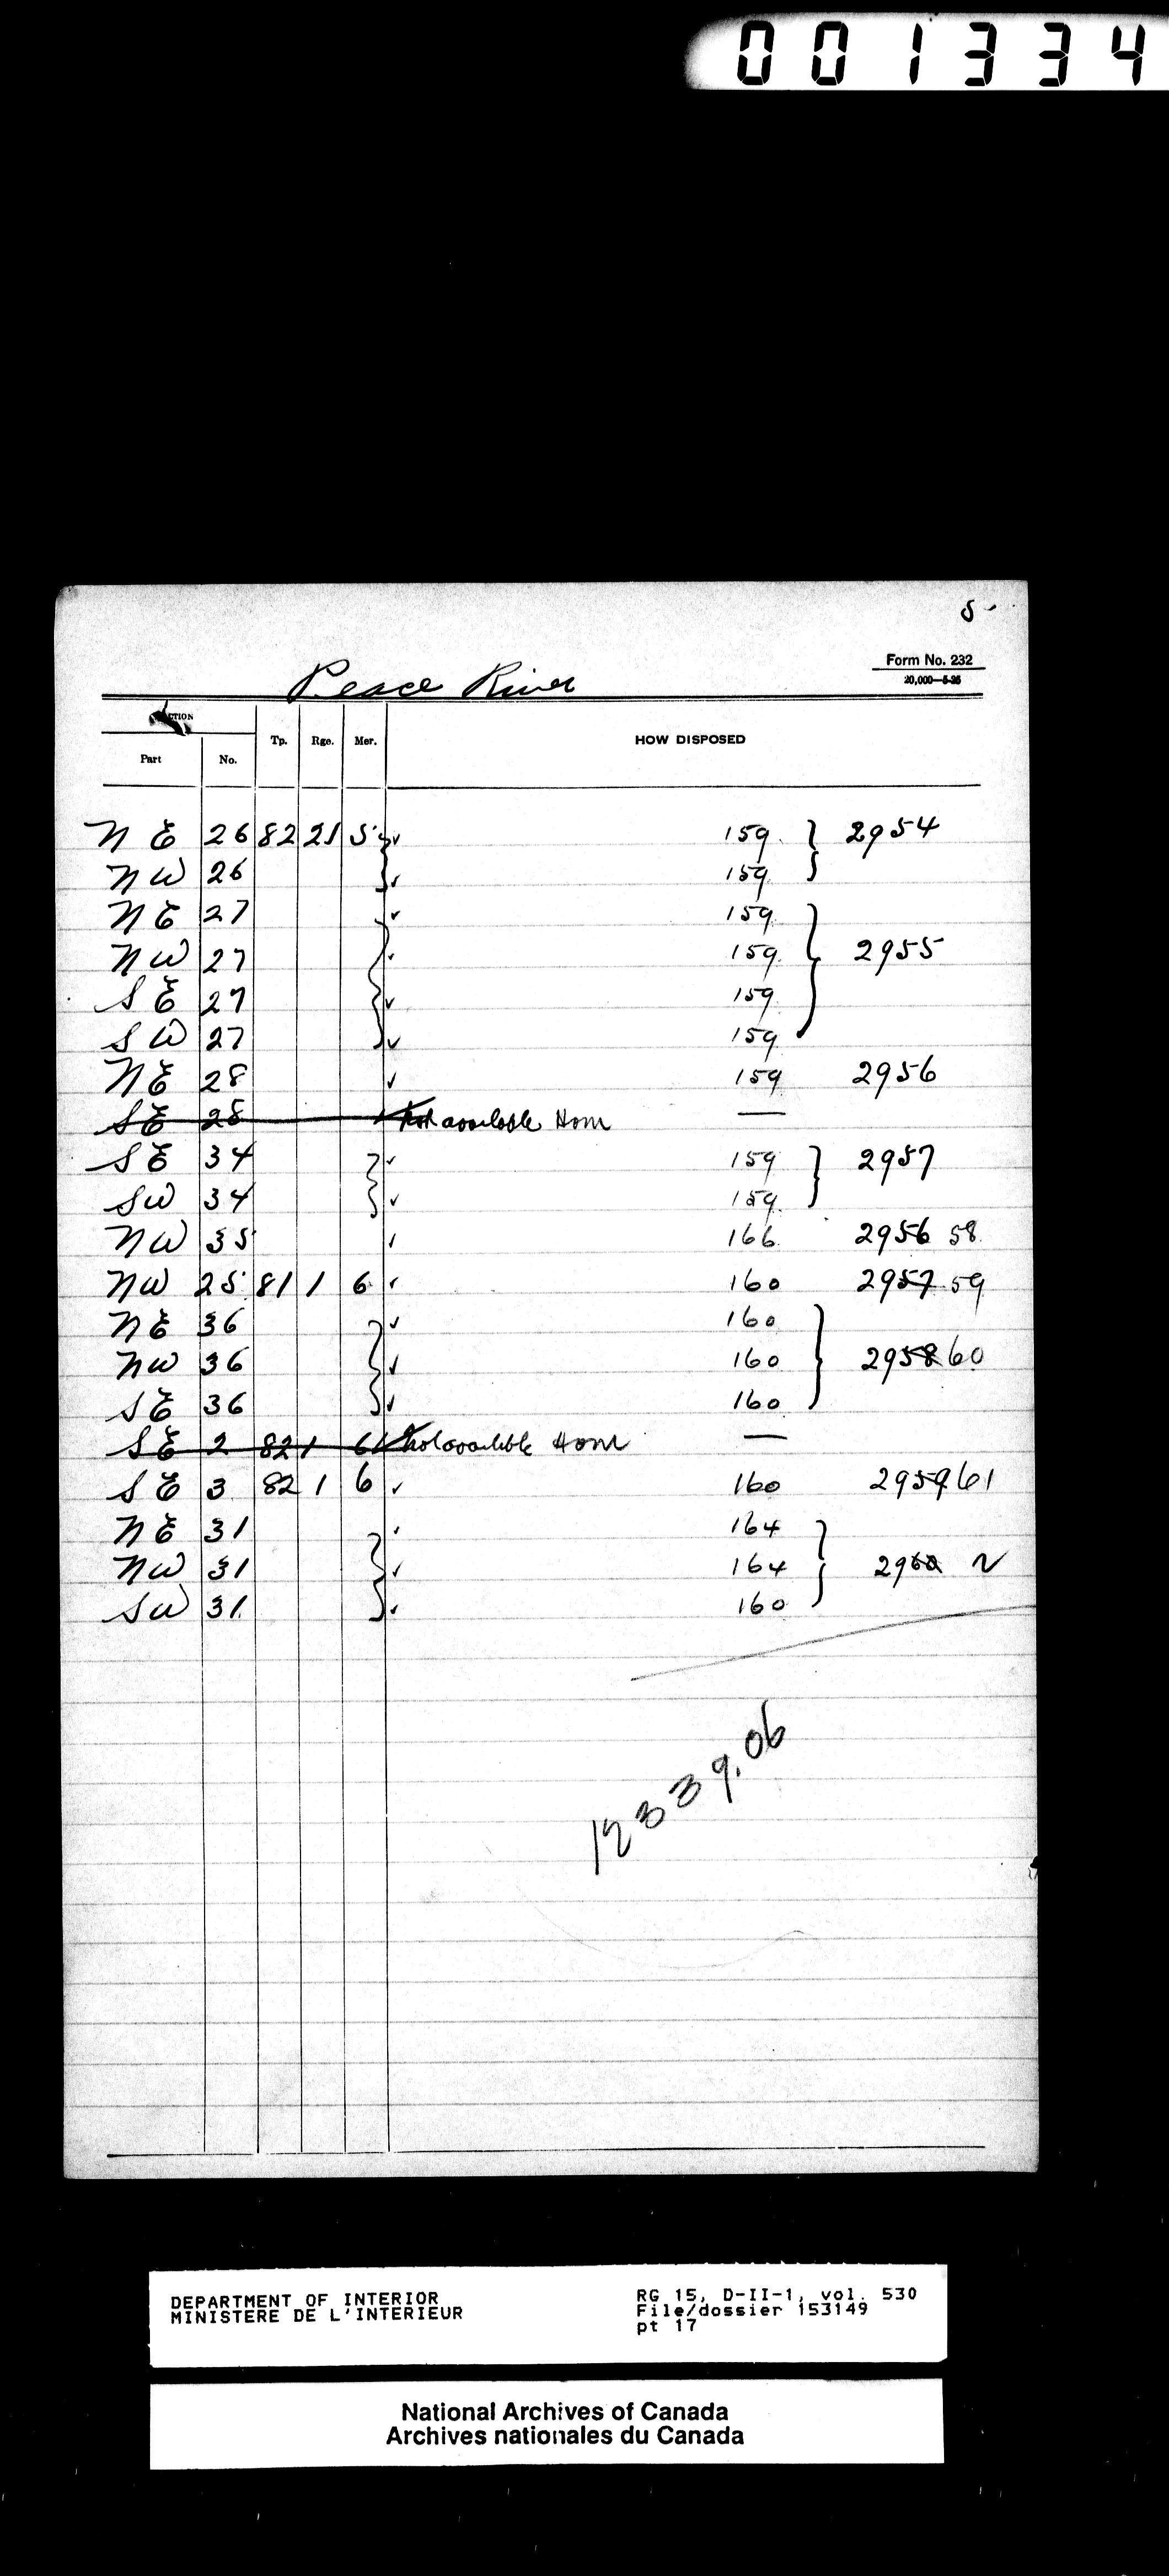 001334
5
Form No. 232
20,000—5-25
Peace River
Part No. Tp. Rge. Mer. HOW DISPOSED
N E 26 82 21 5 ✓ 159 } 2954
N W 26 ✓ 159
N E 27 ✓ 159
N W 27 ✓ 159 } 2955
S E 27 ✓ 159
S W 27 ✓ 159
N E 28 ✓ 159 2956
S E 28 Not available Hom —
S E 34 ✓ 159 } 2957
S W 34 ✓ 159
N W 35 ✓ 166 2956 58
N W 25 81 1 6 ✓ 160 2957 59
N E 36 ✓ 160
N W 36 ✓ 160 } 2958 60
S E 36 ✓ 160
S E 2 82 1 6 Not available Hom —
S E 3 82 1 6 ✓ 160 2959 61
N E 31 ✓ 164
N W 31 ✓ 164 } 2960
S W 31 ✓ 160
12339.06
DEPARTMENT OF INTERIOR
MINISTERE DE L'INTERIEUR
RG 15, D-II-1, vol. 530
File/dossier 153149
pt 17
National Archives of Canada
Archives nationales du Canada